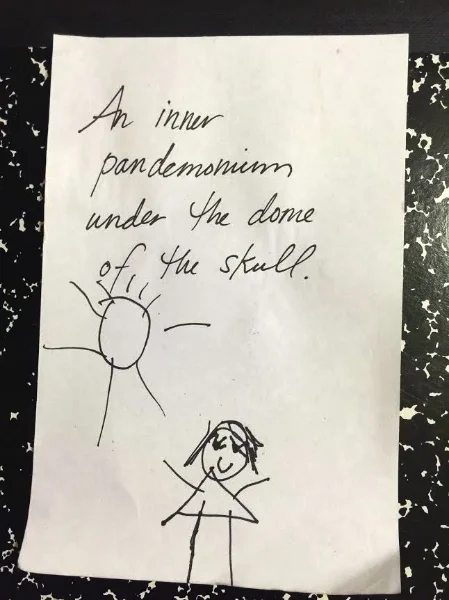 An inner
pandemonium
under the dome
of the skull.